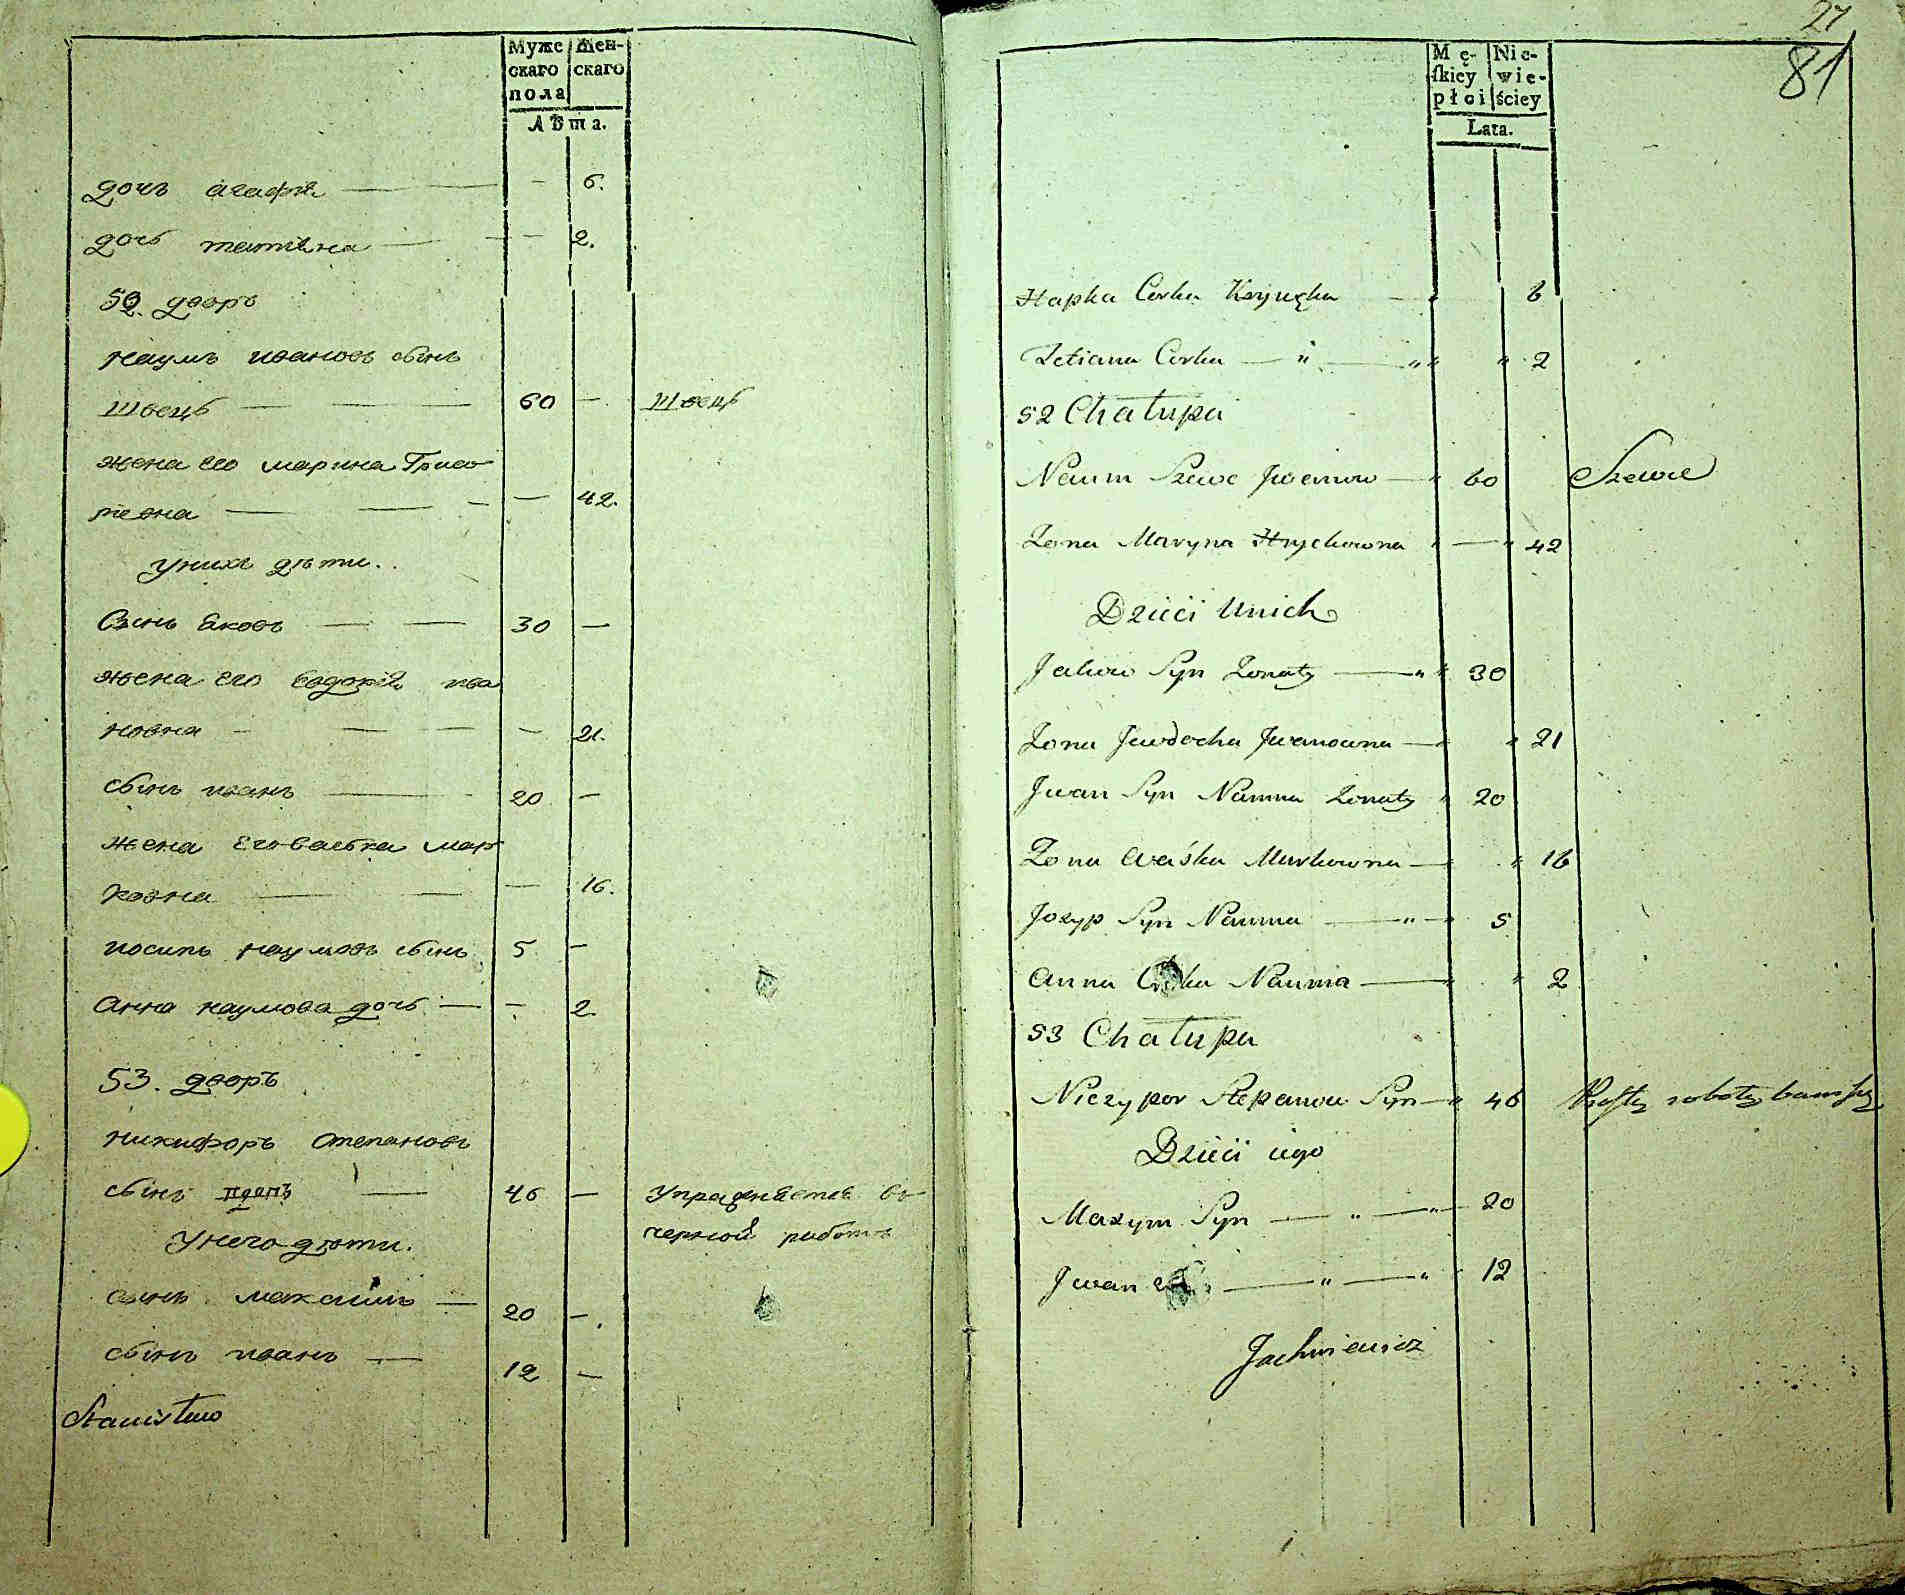 Муже
скаго
пола
Жен-
скаго
Лѣта.
дочь агафія — — — 6.
дочь татіяна — — — 2.
52. дворъ
наумъ ивановъ сынъ
швецъ — — 60 — швецъ
жена его марина Григо
ріевна — — — — 42.
У нихъ дѣти..
Сынъ яковъ — — 30 —
жена его евдокія ива
новна — — — — 21.
сынъ иванъ — 20 —
жена его васька мар
ковна — — — 16.
иосипъ наумовъ сынъ 5 —
Анна наумова дочь — — 2.
53. дворъ
никифоръ степановъ
сынъ — 46 — Упражняется въ
черной работѣ
У него дѣти.
сынъ максимъ — 20 —.
сынъ иванъ — 12 —
Stanisław
27
81
Mę-
skiey
płci
Nie-
wie-
ściey
Lata.
Hapka Corka — 6
Tetiana Corka — " — " " " 2
52 Chałupa
Naum Szewc Jwanow — " 60 Szewc
Zona Maryna Hrychowna " — " 42
Dzieci Unich
Jakow Syn Zonaty — " " 30
Zona Jewdocha Jwanowna — " " 21
Jwan Syn Nauma Zonaty " 20
Zona Waśka Markowna — " 16
Jozyp Syn Nauma — " — 5
Anna Corka Nauma — " " 2
53 Chałupa
Niczypor Stepanow Syn — " 46 robotą
Dzieci iego
Maxym Syn — " — " — 20
Jwan — " — " 12
Jachniewicz